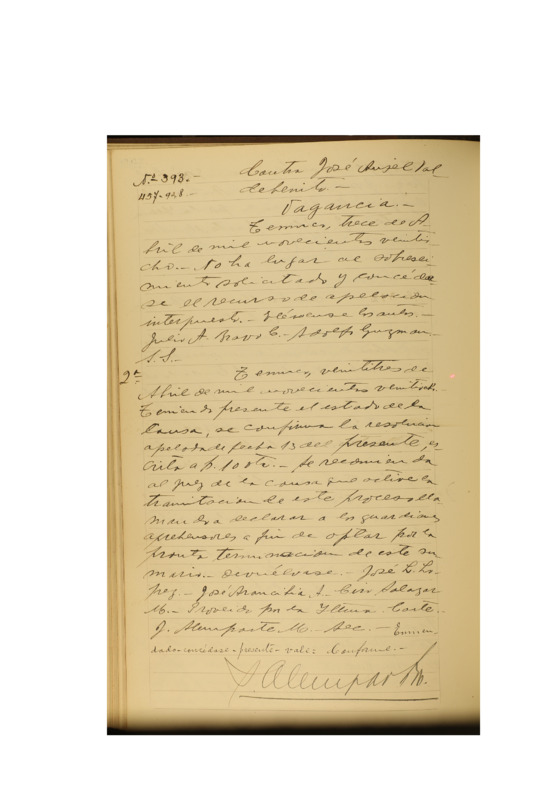 Nº 393.-
1137-928.-
Contra José Anjel Val
debenito.-
Vagancia.-
Temuco, trece de A
bril de mil novecientos ventio
cho.- No ha lugar al sobresei
miento solicitado y concéde
se el recurso de apelación
interpuesto.- Elévense los autos.-
Julio A. Bravo C.- Adolfo Guzman.-
S.S.-
2ª
Temuco, ventitres de
Abril de mil novecientos ventiocho.
Teniendo presente el estado de la
causa, se confirma la resolución
apelada de fecha 13 del presente, es
crita a f. 10 vta.- Se recomienda
al juez de la causa que active la
tramitacion de este proceso
mandra declarar a los guardianes
aprehensores a fin de optar por la
pronta terminacion de este su
mario.- Devuélvase.- José L. Lo
pez.- José Arancibia.- Ciro Salazar
M.- Proveido por la Iltma. Corte.-
D. Alemparte M. Sec.- Enmen
dado-concédese-presente-vale: Conforme.-
D. Alemparte M.